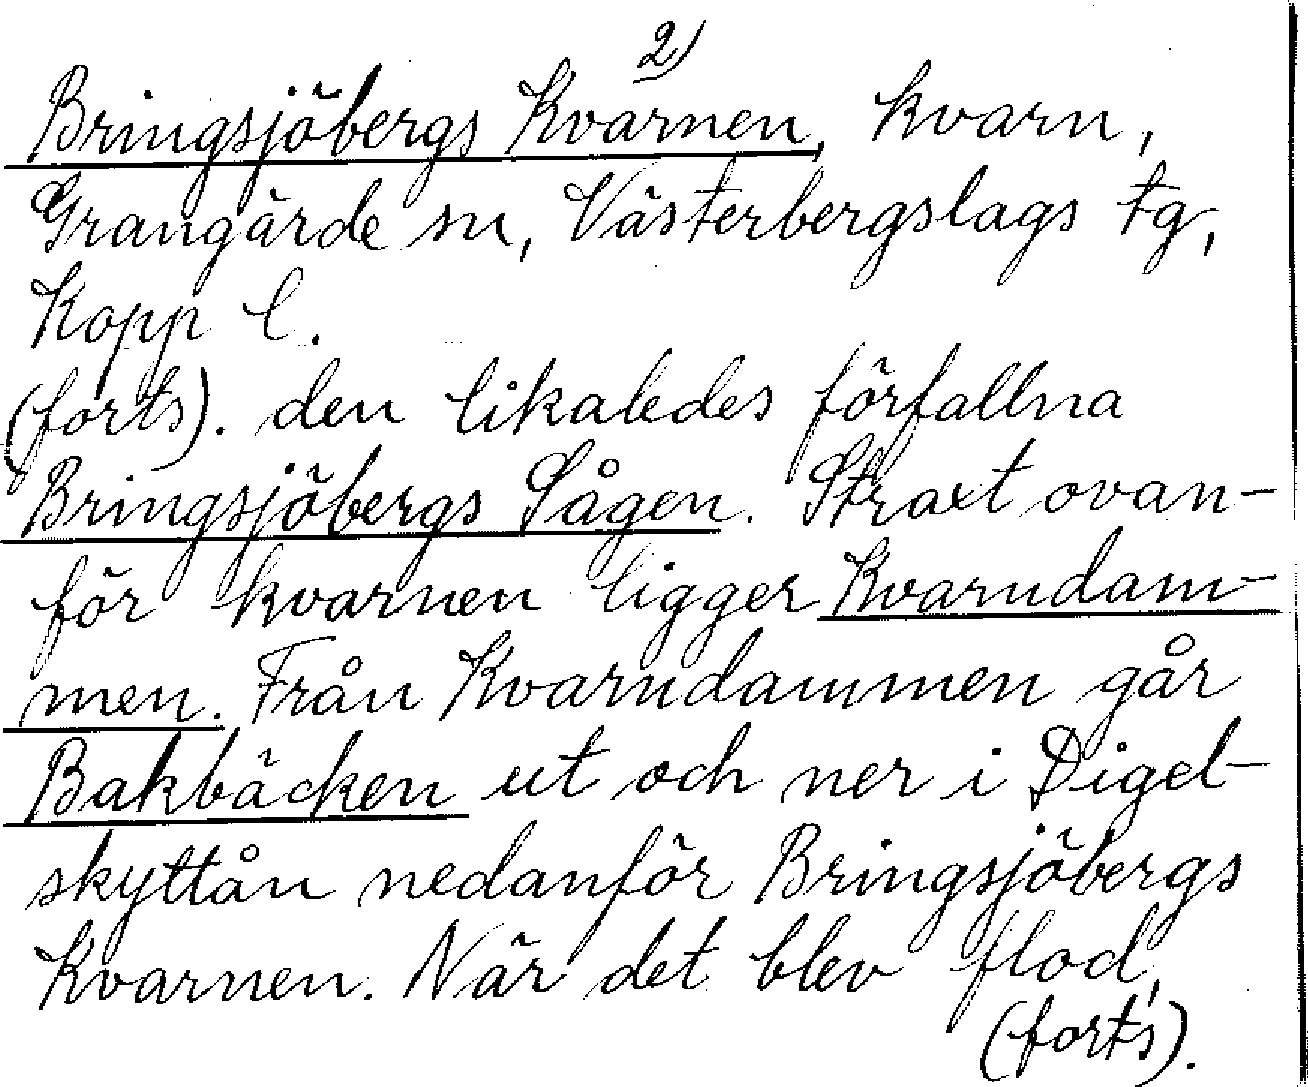 2)
Bringsjöbergs Kvarnen, kvarn,
Grangärde sn, Västerbergslags tg,
Kopp l.
(forts). den likaledes förfallna
Bringsjöbergs Sågen. Straxt ovan-
för kvarnen ligger Kvarndam-
men. Från Kvarndammen går
Bakbäcken ut och ner i Digel-
skyttån nedanför Bringsjöbergs
Kvarnen. När det blev flod,
(forts).